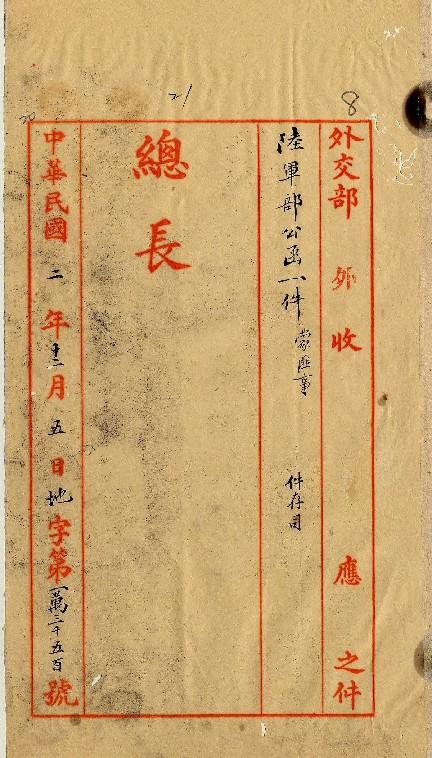 8
21
20
外交部 外 收 應 之件
陸軍部公函一件 蒙匪事 件存司
總長
中華民國二年十二月五日地字第一萬三千五百號